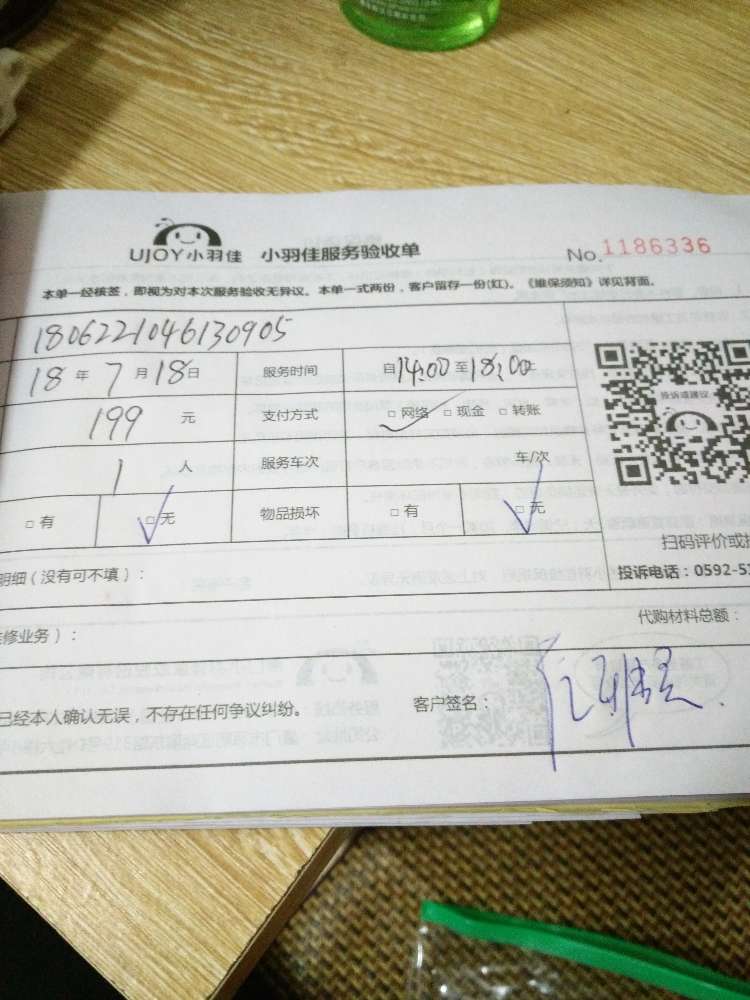 UJOY小羽佳 小羽佳服务验收单 No.1186336
本单一经核签，即视为对本次服务验收无异议。本单一式两份，客户留存一份(红)。《维保须知》详见背面。
180622104613090５
18 年 7 月 18 日 服务时间 自 14:00 至 18:00
199 元 支付方式 □ 网络 □ 现金 □ 转账
投诉或建议
1 人 服务车次 车/次
□ 有 □ 无 物品损坏 □ 有 □ 无
扫码评价或
明细（没有可不填）：
投诉电话：0592-5
代购材料总额：
修业务）：
已经本人确认无误，不存在任何争议纠纷。 客户签名：